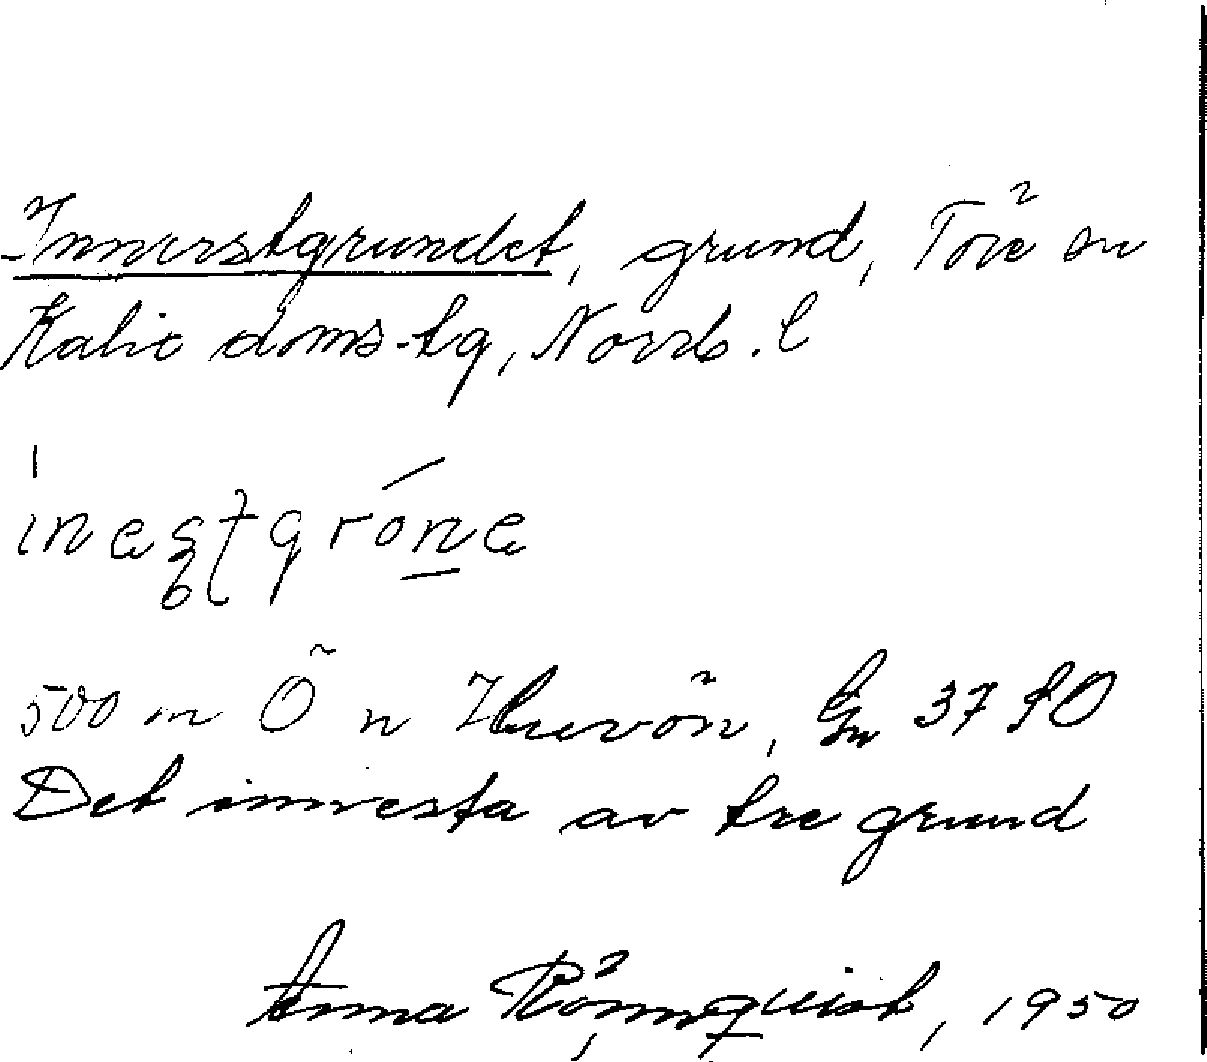 Innerstgrundet, grund, Töre sn
Kalix doms-tg, Norrb. l
inestgróne
500 m Ö n Huvön, Gn 37 SO
Det innersta av tre grund
Anna Rönnqvist, 1950